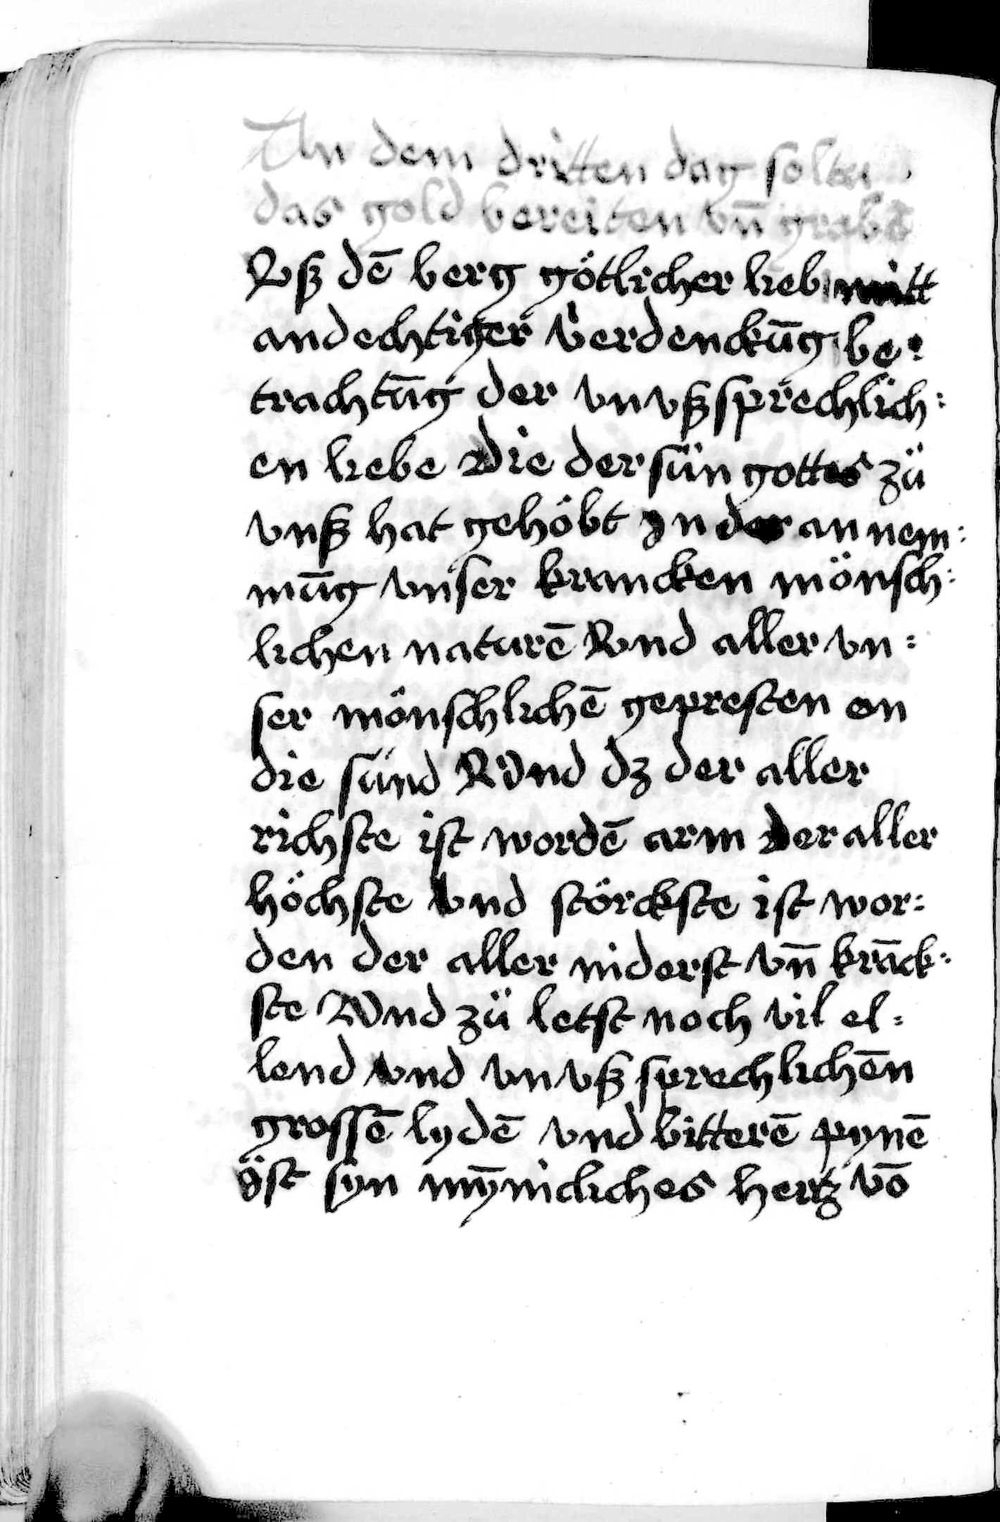 An dem dritten dag soltu
das gold bereiten vn̄ grabē
Vsß dē berg götlicher lieb mitt
andechtiger verdenckūg be:
trachtūg der vnvsßsprechlich:
en liebe Die der sün gottes zü
vnsß hat gehöbt jn der an nem:
mūg vnser krancken mönsch:
lichen naturē Vnd aller vn:
ser mönschlichē gepresten on
die sünd Vnd dz der aller
richste ist wordē arm Der aller
höchste vnd störckste ist wor:
den der aller niderst vn̄ krāck:
ste Vnd zü letst noch vil el:
lend vnd vnvsßsprechlichēn
grossē lydē vnd bitterē pynē
jst syn mȳnicliches hertz vō